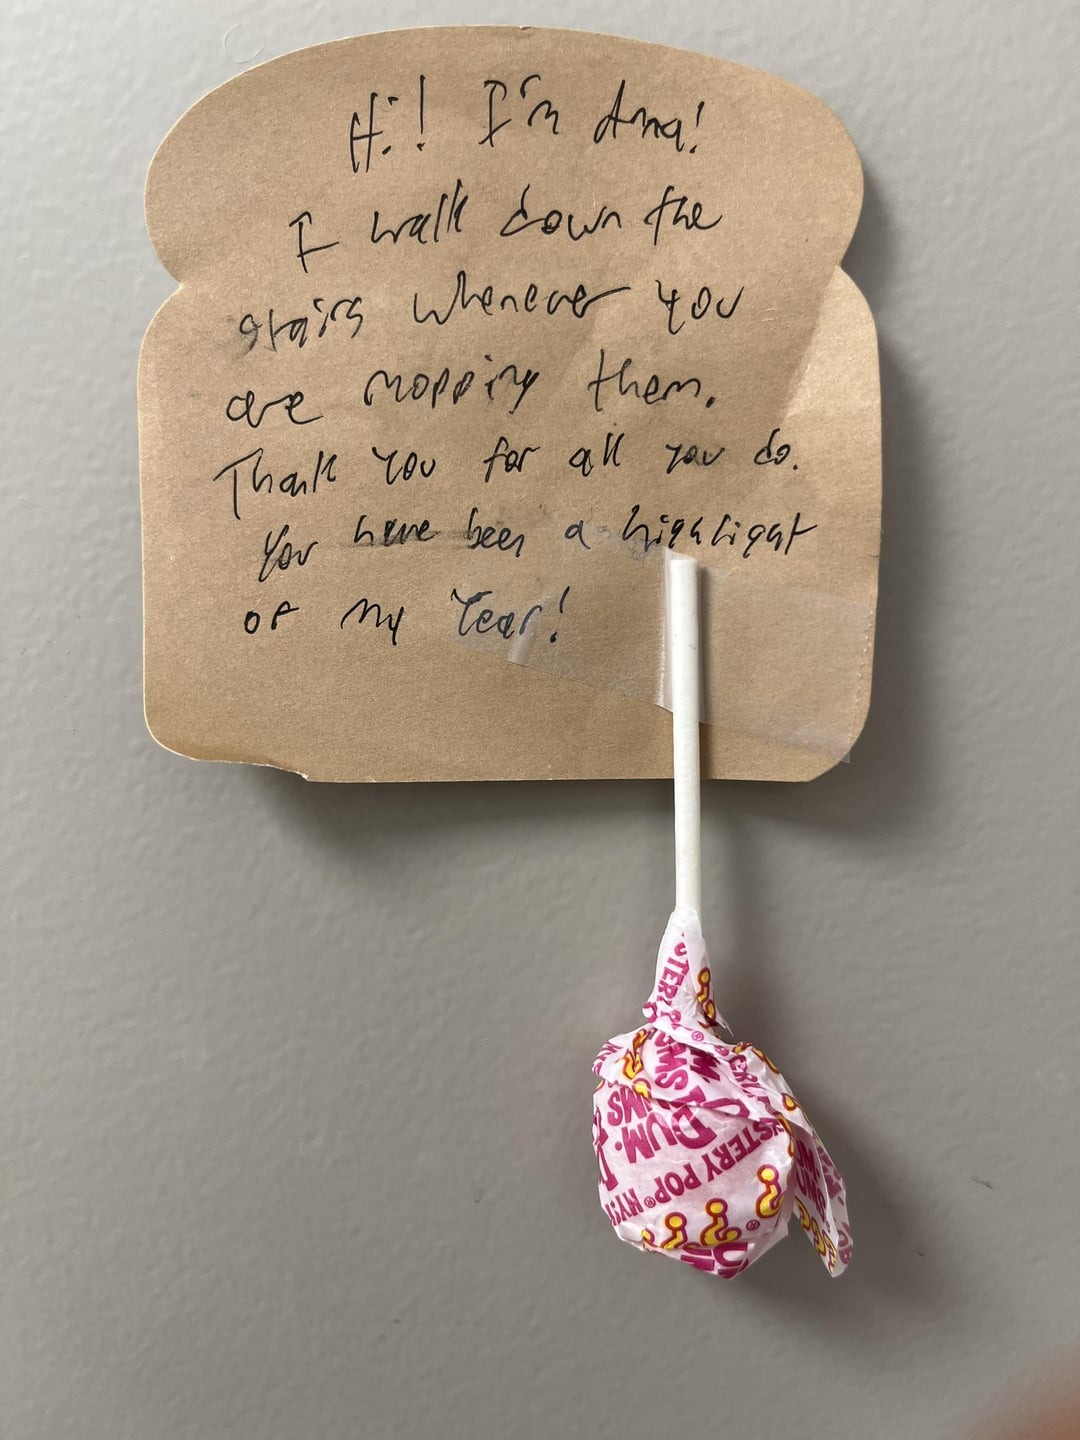 Hi! I'm Anna!
I walk down the
stairs whenever you
are mopping them.
Thank you for all you do.
You have been a highlight
of my Year!
MYSTERY POP®
DUM·DUMS